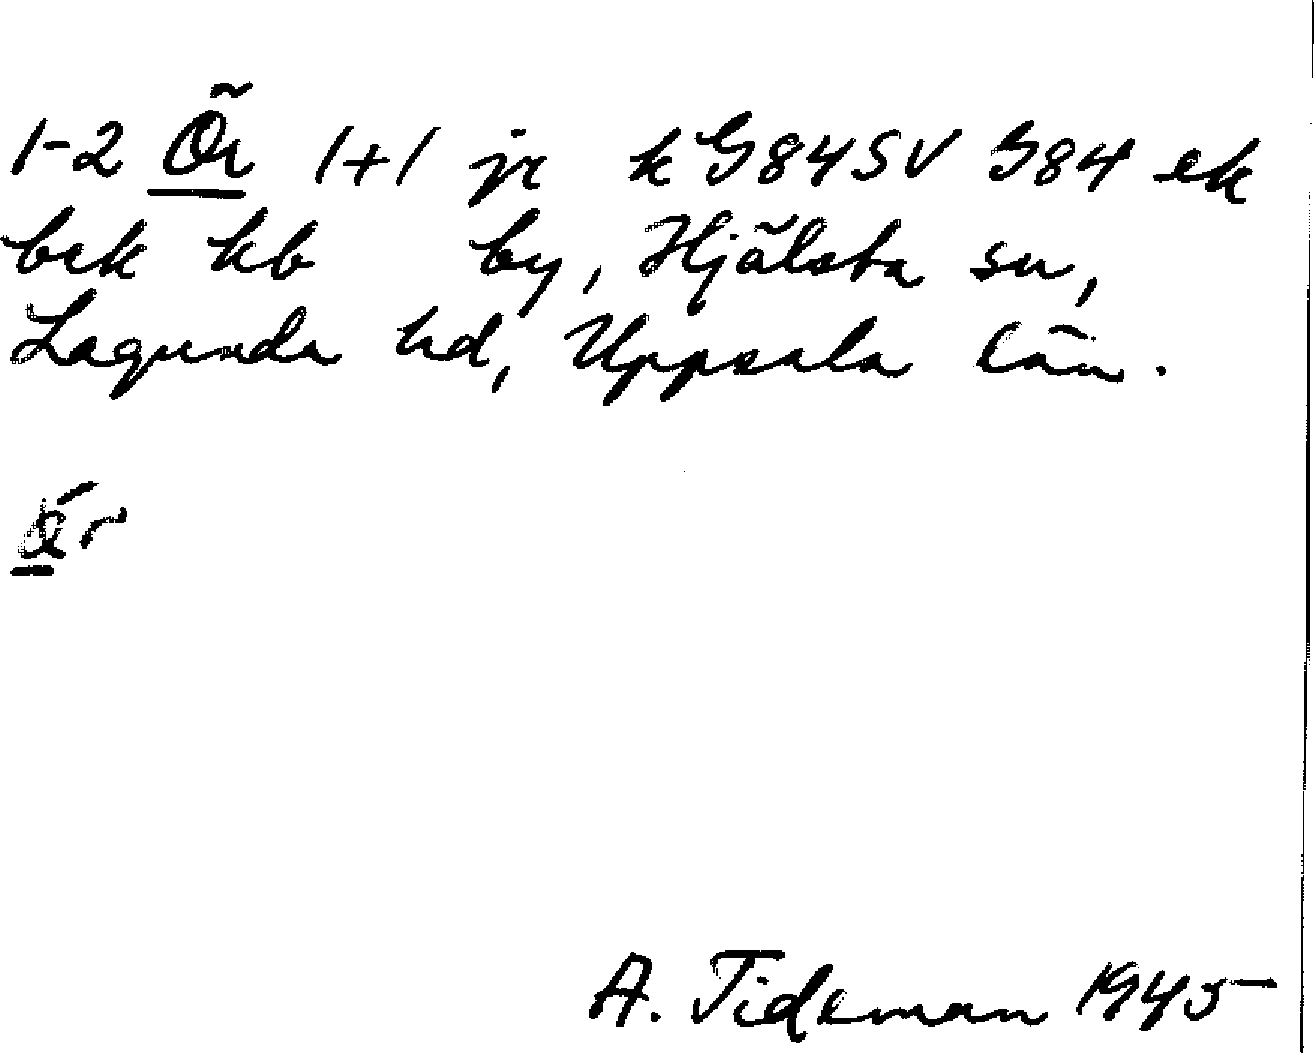 1-2 Ör 1+1 jr k G84SV G84 ek
bek kb by, Hjälsta sn,
Lagunda hd, Uppsala län.
Ör
A. Tideman 1945